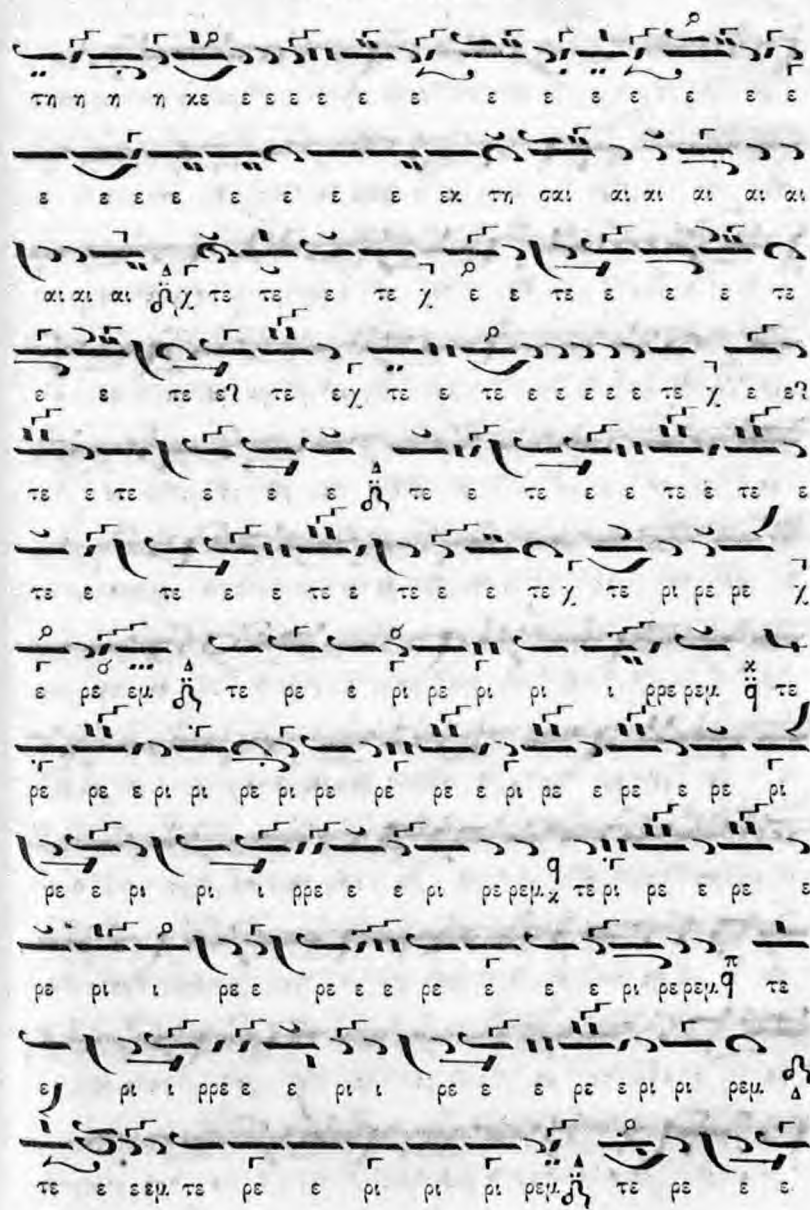 τη η η η κε ε ε ε ε ε ε ε ε ε ε ε ε ε
ε ε ε ε ε ε ε ε εκ τη σαι αι αι αι αι αι
αι αι αι χ τε τε ε τε χ ε ε τε ε ε ε τε
ε ε τε ε τε ε χ τε ε τε ε ε ε ε τε χ ε ε
τε ε τε ε ε ε τε ε τε ε ε τε ε τε ε
τε ε τε ε ε τε ε τε ε ε τε χ τε ρι ρε ρε χ
ε ρε εμ τε ρε ε ρι ρε ρι ρι ι ρρε ρεμ τε
ρε ρε ε ρι ρι ρε ρι ρε ρε ρε ε ρι ρε ε ρε ε ρε ρι
ρε ε ρι ρι ι ρρε ε ε ρι ρε ρεμ τε ρι ρε ε ρε ε
ρε ρι ι ρε ε ρε ε ε ρε ε ε ε ρι ρε ρεμ τε
ε ρι ι ρρε ε ε ρι ι ρε ε ε ρε ε ρι ρι ρεμ
τε ε ε εμ τε ρε ε ρι ρι ρι ρεμ τε ρε ε ε